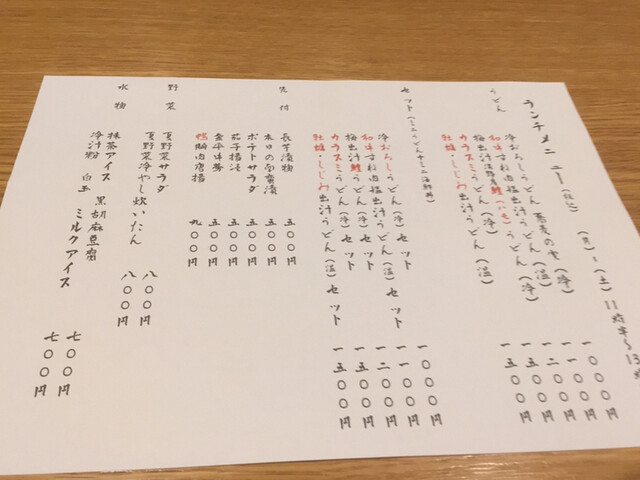 ランチメニュー (税込) (月)~(土) 11時半~13時
うどん
冷おろしうどん 蕎麦の実 (冷) 一〇〇〇円
和牛すね肉塩出汁うどん (温) 一一〇〇円
梅出汁 鯉 うどん (冷) 一二〇〇円
カラスミうどん (冷) 一五〇〇円
牡蠣・しじみ出汁うどん (温) 一五〇〇円
セット (ミニうどん+ミニ海鮮丼)
冷おろしうどん (冷) セット 一〇〇〇円
和牛すね肉塩出汁うどん (温) セット 一一〇〇円
梅出汁鯉うどん (冷) セット 一二〇〇円
カラスミうどん (冷) セット 一五〇〇円
牡蠣・しじみ出汁うどん (温) セット 一五〇〇円
先付
長芋漬物 五〇〇円
本日の南蛮漬 五〇〇円
ポテトサラダ 五〇〇円
茄子揚浸 五〇〇円
金平牛蒡 五〇〇円
鴨胸肉唐揚 九〇〇円
野菜
夏野菜サラダ 八〇〇円
夏野菜冷やし炊いたん 八〇〇円
水物
抹茶アイス 黒胡麻豆腐 七〇〇円
冷汁粉 白玉 ミルクアイス 七〇〇円